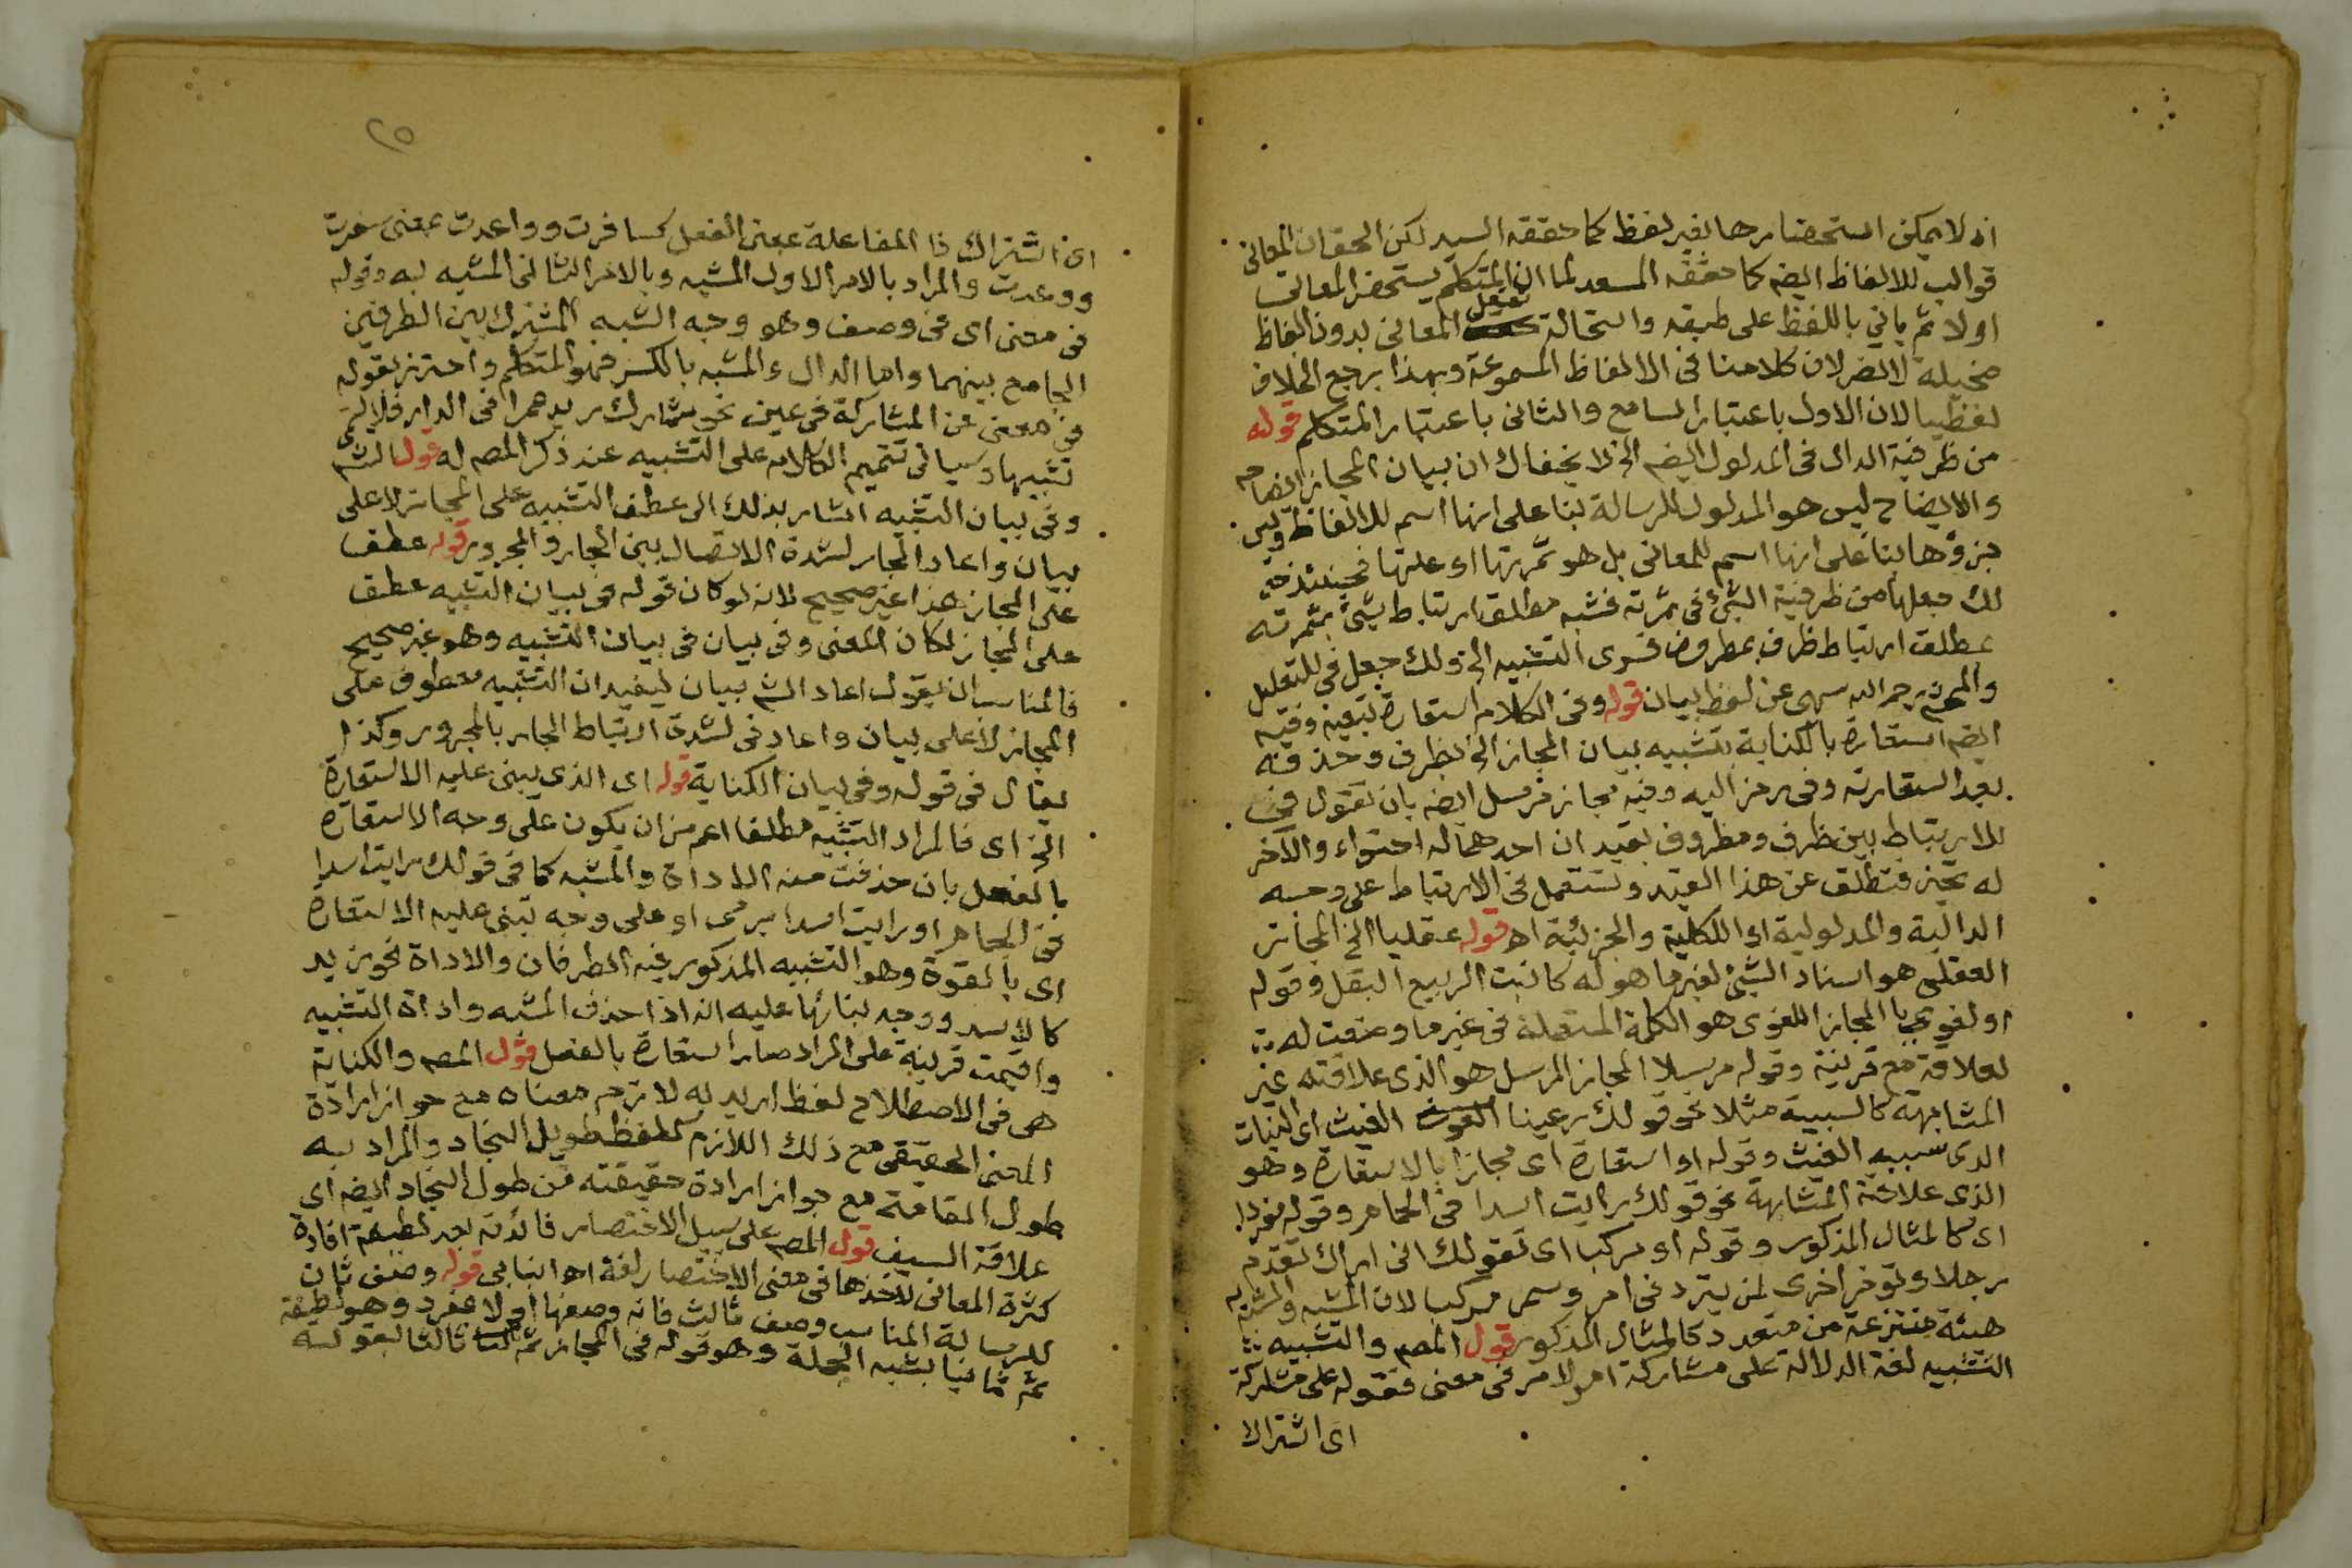 اذ لا يمكن استحضارها بغير لفظ كما حققه السيد لكن الحق ان المعانى
قوالب للالفاظ ايضه كما حققه السعد لما ان المتكلم يستحضر المعانى
اولا ثم ياتي باللفظ على طبقه واستحالة تعقل المعانى بدون الفاظ
مخيلة لا تضر لان كلامنا فى الالفاظ المسموعة وبهذا يرجع الخلاف
لفظيا لان الاول باعتبار السامع والثانى باعتبار المتكلم قوله
من ظرفية الدال فى المدلول ايضه الخ لا يخفاك ان بيان المجاز ايضاحه
والايضاح ليس هو المدلول للرسالة بنا على انها اسم للالفاظ وليس
جزؤها بناً على انها اسم للمعانى بل هو ثمرتها او علتها فحينئذ
لك جعلها من ظرفية الشئ فى ثمرته فشبه مطلق ارتباط شئ بثمرته
بمطلق ارتباط ظرف بمظروف فسرى التشبيه الخ ولك جعل فى للتعليل
والمحشى رحمه الله سهى عن لفظ بيان قوله وفى الكلام استعارة تبعية وفيه
ايضه استعارة بالكناية بتشبيه بيان المجاز الخ بظرف وحذفه
بعد استعارته وفى رمز اليه وفيه مجاز مرسل ايضه بان تقول فى
للارتباط بين ظرف ومظروف بقيد ان احدهما له احتواء والآخر
له تحيز فتطلق عن هذا القيد وتستعمل فى الارتباط على وجه
الدالية والمدلولية او الكلية والجزئية اه قوله عقليا الخ المجاز
العقلى هو اسناد الشئ لغير ما هو له كانبت الربيع البقل وقوله
او لغويا المجاز اللغوى هو الكلمة المستعملة فى غير ما وضعت له
لعلاقة مع قرينة وقوله مرسلا المجاز المرسل هو الذى علاقته غير
المشابهة كالسببية مثلا نحو قولك رعينا الغيث اى النبات
الذى سببه الغيث وقوله او استعارة اى مجازا بالاستعارة وهو
الذى علاقته المشابهة نحو قولك رايت اسدا فى الحمام وقوله مفردا
اى كالمثال المذكور وقوله او مركبا اى كقولك انى اراك تقدم
رجلا وتؤخر اخرى لمن يتردد فى امر وسمى مركبا لان المشبه والمشبه به
هيئة منتزعة من متعدد كالمثال المذكور قول المصه والتشبيه
التشبيه لغة الدلالة على مشاركة امر لامر فى معنى فقوله على مشاركة
اى اشتراك
٢٥
اى اشتراك فالمفاعلة بمعنى الفعل كسافرت وواعدت بمعنى سفرت
ووعدت والمراد بالامر الاول المشبه وبالامر الثانى المشبه به وقوله
فى معنى اى فى وصف وهو وجه الشبه المشترك بين الطرفين
الجامع بينهما واما الدال والمشبه بالكسر فهو المتكلم واحترز بقوله
فى معنى عن المشاركة فى عين نحو شارك زيد عمرا فى الدار فلا يسمى
تشبيها وسياتى تتميم الكلام على التشبيه عند ذكر المصه له قول الشه
وفى بيان التشبيه اشار بذلك الى عطف التشبيه على المجاز لا على
بيان واعاد الجار لشدة الاتصال بين الجار والمجرور قوله عطف
على المجاز هذا غير صحيح لانه لو كان قوله فى بيان التشبيه عطف
على المجاز لكان المعنى وفى بيان فى بيان التشبيه وهو غير صحيح
فالمناسب ان يقول اعاد الشه بيان ليفيد ان التشبيه معطوف على
المجاز لا على بيان واعاد فى لشدة ارتباط الجار بالمجرور وكذا
يقال فى قوله وفى بيان الكناية قوله اى الذى يبنى عليه الاستعارة
الخ اى فالمراد التشبيه مطلقا اعم من ان يكون على وجه الاستعارة
بالفعل بان حذفت منه الاداة والمشبه كما فى قولك رايت اسدا
فى الحمام او رايت اسدا يرمى او على وجه تبنى عليه الاستعارة
اى بالقوة وهو التشبيه المذكور فيه الطرفان والاداة نحو زيد
كالاسد ووجه بنائها عليه انه اذا حذف المشبه واداة التشبيه
واقيمت قرينة على المراد صار استعارة بالفعل قول المصه والكناية
هى فى الاصطلاح لفظ اريد به لازم معناه مع جواز ارادة
المعنى الحقيقى مع ذلك اللازم كلفظ طويل النجاد والمراد به
طول القامة مع جواز ارادة حقيقته من طول النجاد ايضه اى
علاقة السيف قول المصه على سبيل الاختصار فائدته بعد لطيفة افادة
كثرة المعانى لاخذها فى معنى الاختصار لغة اه انبابى قوله وصف ثان
للرسالة المناسب وصف ثالث فانه وصفها اولا بمفرد وهو لطيفة
ثم ثانيا بشبه الجملة وهو قوله فى المجاز ثم ثالثا بقوله